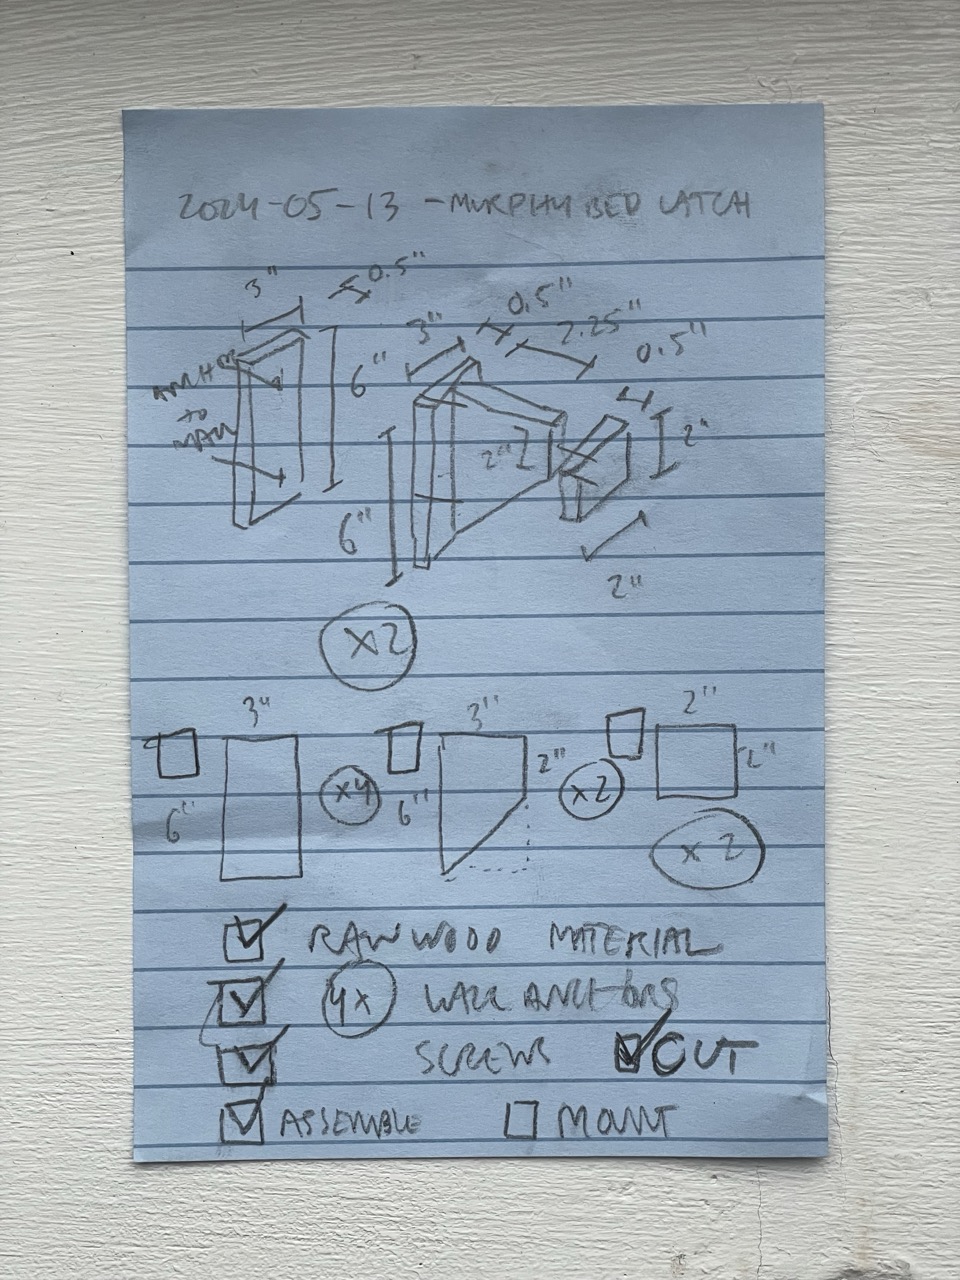 2024-05-13 - MURPHY BED LATCH
3" 0.5"
0.5"
3" 2.25"
0.5"
6"
ANCHOR
TO
WALL
2" 2"
6"
2"
x2
3" 3" 2"
2" 2"
x4 x2
6" 6"
x2
RAW WOOD MATERIAL
4x WALL ANCHORS
SCREWS CUT
ASSEMBLE MOUNT